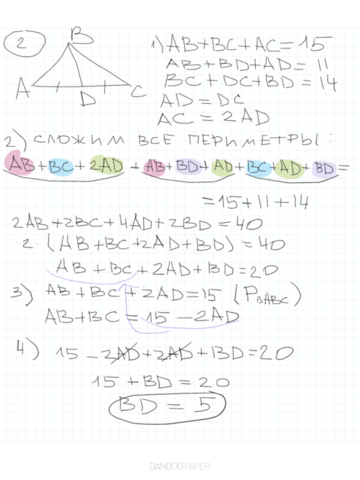 2
B
A
D
C
1) AB+BC+AC=15
AB+BD+AD=11
BC+DC+BD=14
AD=DC
AC=2AD
2) СЛОЖИМ ВСЕ ПЕРИМЕТРЫ:
AB+BC+2AD+AB+BD+AD+BC+AD+BD=
=15+11+14
2AB+2BC+4AD+2BD=40
2·(AB+BC+2AD+BD)=40
AB+BC+2AD+BD=20
3) AB+BC+2AD=15 (PΔABC)
AB+BC=15-2AD
4) 15-2AD+2AD+BD=20
15+BD=20
BD=5
DAMOOTPAPER